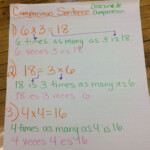 Comparison Sentence
comparison
1) 6 x 3 = 18
6 times as many as 3 is 18
6 veces 3 es 18
2) 18 = 3 x 6
18 is 3 times as many as 6
18 es 3 veces 6
3) 4 x 4 = 16
4 times as many as 4 is 16
4 veces 4 es 16